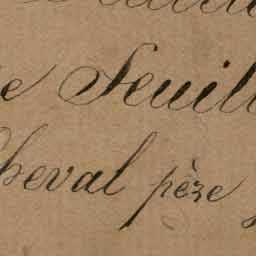 e Feuill
Cheval père